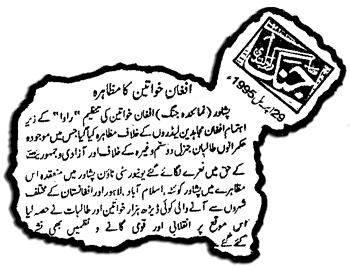 جنگ
راولپنڈی
29/اپریل 1995ء
افغان خواتین کا مظاہرہ
پشاور (نمائندہ جنگ) افغان خواتین کی تنظیم "راوا" کے زیر
اہتمام افغان مجاہدین لیڈروں کے خلاف مظاہرہ کیا گیا جس میں موجودہ
حکمرانوں طالبان جنرل دوستم وغیرہ کے خلاف اور آزادی و جمہوریت
کے حق میں نعرے لگائے گئے یونیورسٹی ٹاؤن پشاور میں منعقدہ اس
مظاہرے میں پشاور کوئٹہ، اسلام آباد، لاہور اور افغانستان کے مختلف
شہروں سے آنے والی کوئی ڈیڑھ ہزار خواتین اور طالبات نے حصہ لیا
اس موقع پر انقلابی اور قومی گانے و نظمیں بھی نشر
کئے گئے